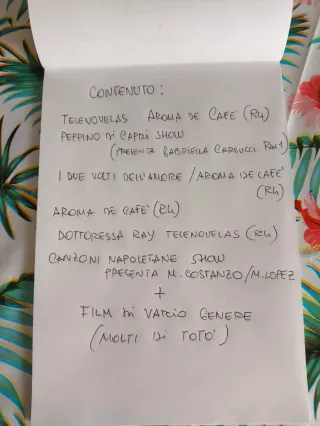 CONTENUTO:
TELENOVELAS AROMA DE CAFE' (R4)
PEPPINO DI CAPRI SHOW
(PRESENTA GABRIELLA CARLUCCI RAI 1)
I DUE VOLTI DELL'AMORE / AROMA DE CAFE'
(R4)
AROMA DE CAFE' (R4)
DOTTORESSA RAY TELENOVELAS (R4)
CANZONI NAPOLETANE SHOW
PRESENTA M. COSTANZO/M. LOPEZ
+
FILM DI VARIO GENERE
(MOLTI DI TOTO')